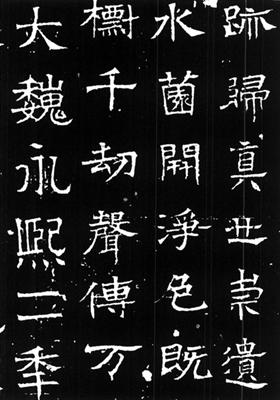 跡歸真世崇遺
水菌開淨色既
千劫聲傳万
大魏永熙二年